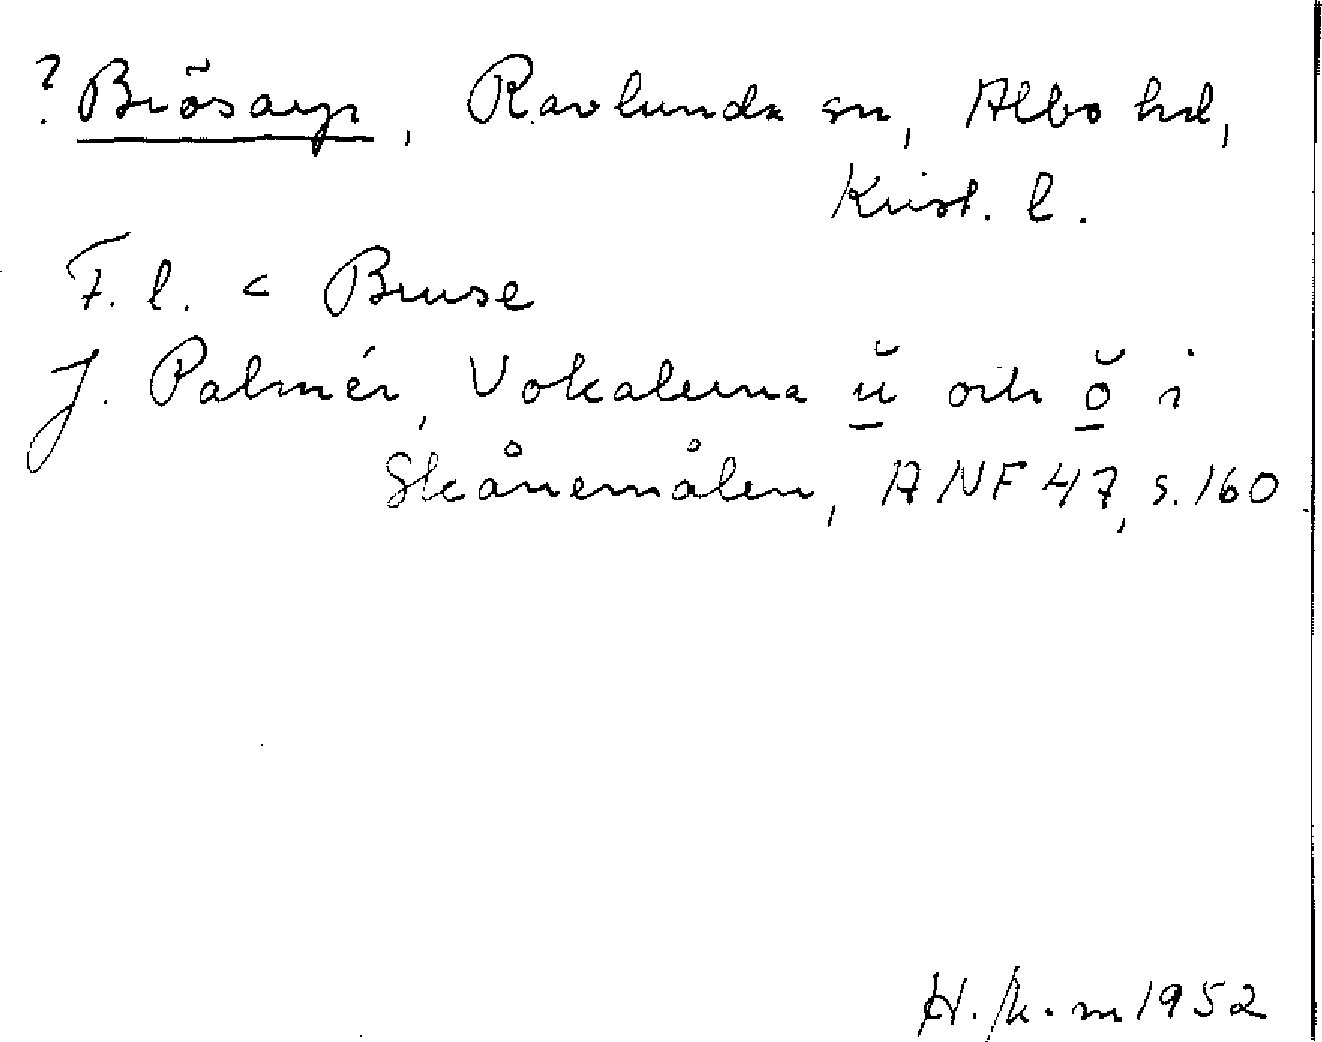 ? Brösarp, Ravlunda sn, Albo hd,
Krist. l.
F. l. < Bruse
J. Palmér, Vokalerna ŭ och ŏ i
Skånemålen, ANF 47, s. 160
1952